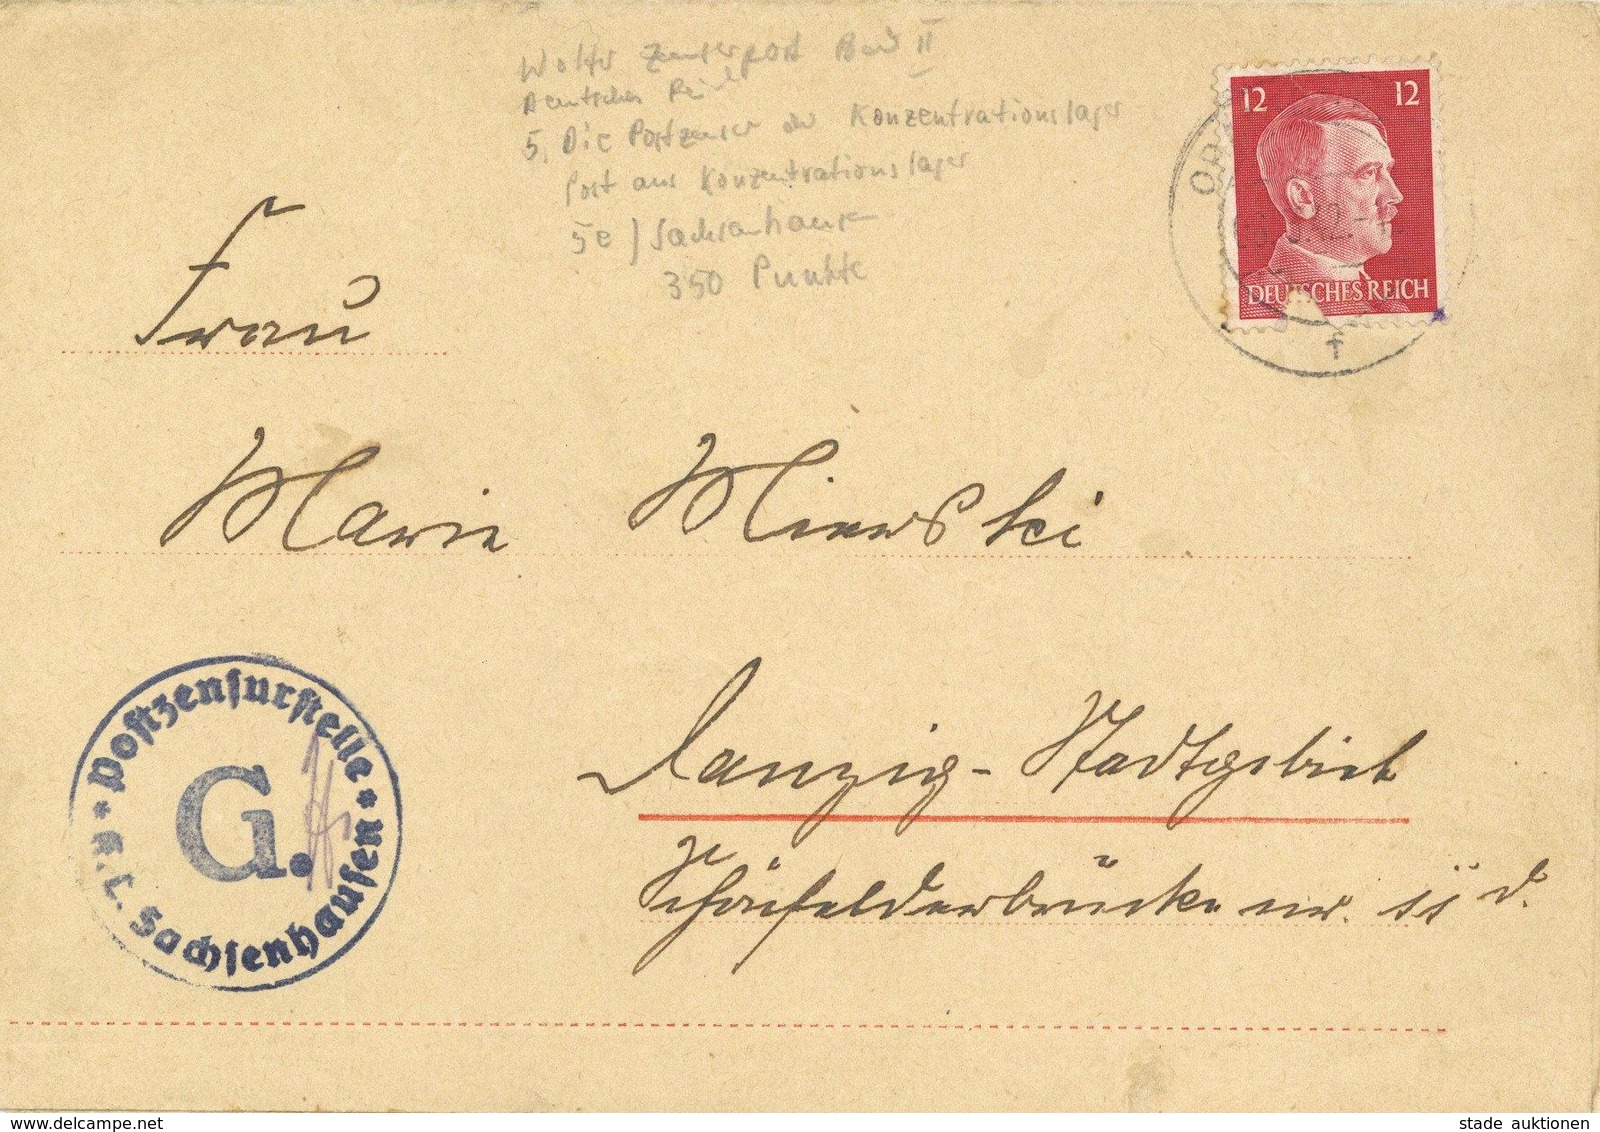 Wolter Zensurpost Band II
Deutsches Reich
5. Die Postzensur der Konzentrationslager
Post aus Konzentrationslager
5e) Sachsenhausen
350 Punkte
12 12
DEUTSCHES REICH
f
Frau
Marie
Danzig-Stadtgebiet
Schönfelderbrücke nr.
Postzensurstelle
G.
K.L. Sachsenhausen
delcampe.net
stade auktionen